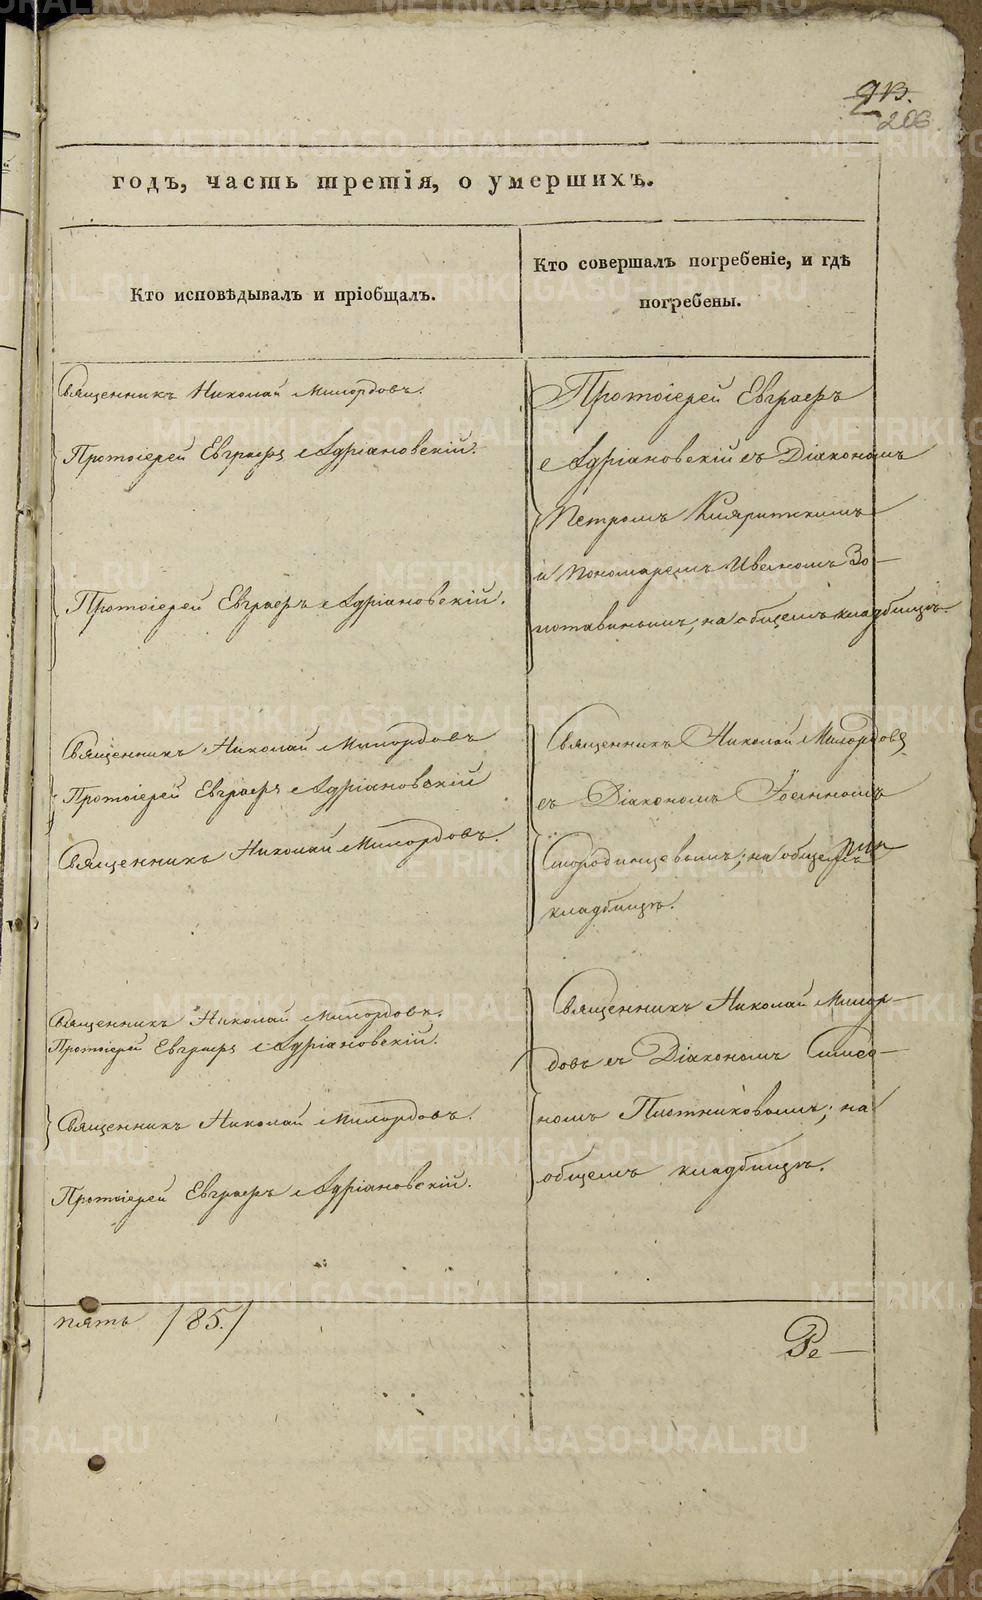 206
годъ, часть третія, о умершихъ.
Кто исповѣдывалъ и пріобщалъ.
Кто совершалъ погребеніе, и гдѣ
погребены.
Священникъ Николай Милордовъ.
Протоіерей Евграфъ Адріановскій.
Протоіерей Евграфъ Адріановскій.
Священникъ Николай Милордовъ
Протоіерей Евграфъ Адріановскій
Священникъ Николай Милордовъ.
Священникъ Николай Милордовъ.
Протоіерей Евграфъ Адріановскій.
Священникъ Николай Милордовъ.
Протоіерей Евграфъ Адріановскій.
Протоіерей Евграфъ
Адріановскій съ Діакономъ
Петромъ
и Пономаремъ Иваномъ Зо-
лотавинымъ; на общемъ кладбищѣ.
Священникъ Николай Милордовъ
съ Діакономъ Іоанномъ
Смородинцевымъ; на общемъ
кладбищѣ.
Священникъ Николай Милор-
довъ съ Діакономъ Симео-
номъ Плотниковымъ; на
общемъ кладбищѣ.
пять /85./
Ре-
METRIKI.GASO-URAL.RU